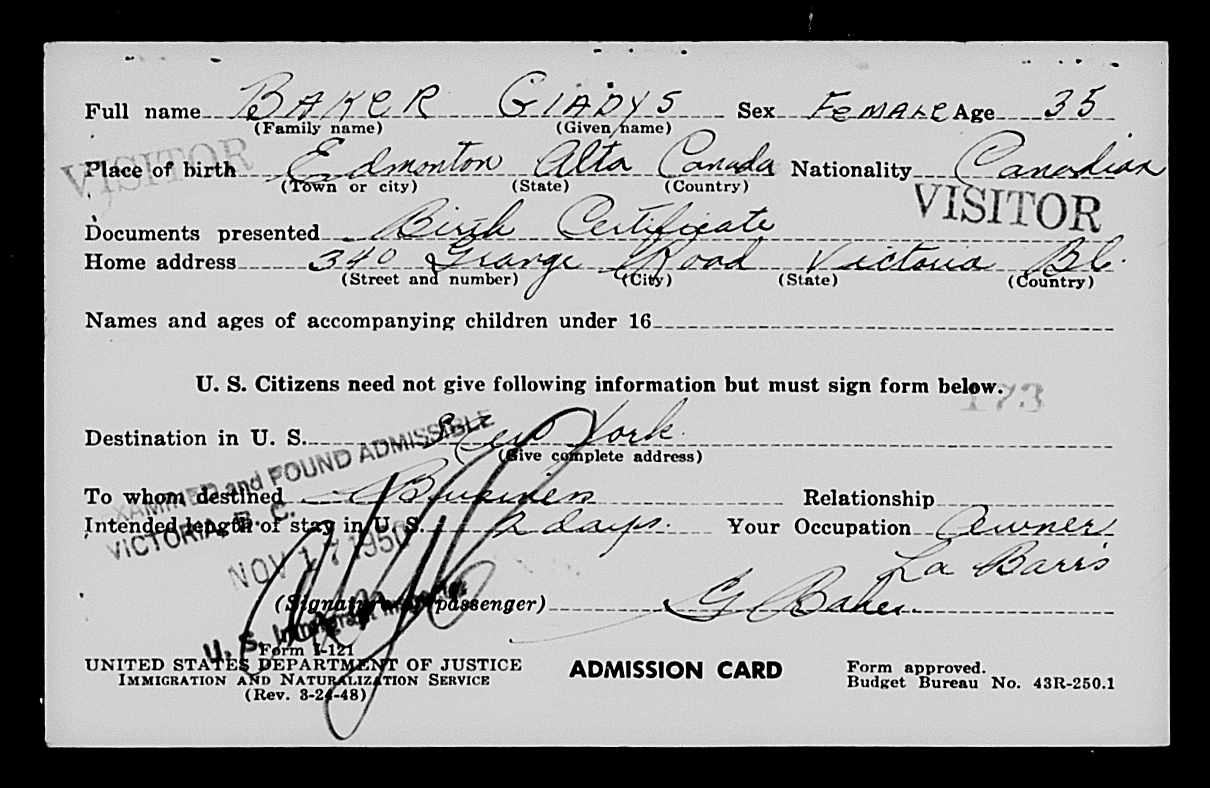 Full name BAKER GLADYS Sex FEMALE Age 35
(Family name) (Given name)
VISITOR
Place of birth Edmonton Alta Canada Nationality Canadian
(Town or city) (State) (Country)
VISITOR
Documents presented Birth Certificate
Home address 340 Grange Road Victoria BC.
(Street and number) (City) (State) (Country)
Names and ages of accompanying children under 16
U. S. Citizens need not give following information but must sign form below.
173
Destination in U. S. New York.
(Give complete address)
EXAMINED and FOUND ADMISSIBLE
To whom destined Business Relationship
Intended length of stay in U. S. 2 days. Your Occupation Owner
VICTORIA, B. C.
La Barr's
NOV 17 1950
(Signature of passenger) G Baker
U. S. Immigrant Inspector
Form I-121
UNITED STATES DEPARTMENT OF JUSTICE
IMMIGRATION AND NATURALIZATION SERVICE
(Rev. 3-24-48)
ADMISSION CARD
Form approved.
Budget Bureau No. 43R-250.1